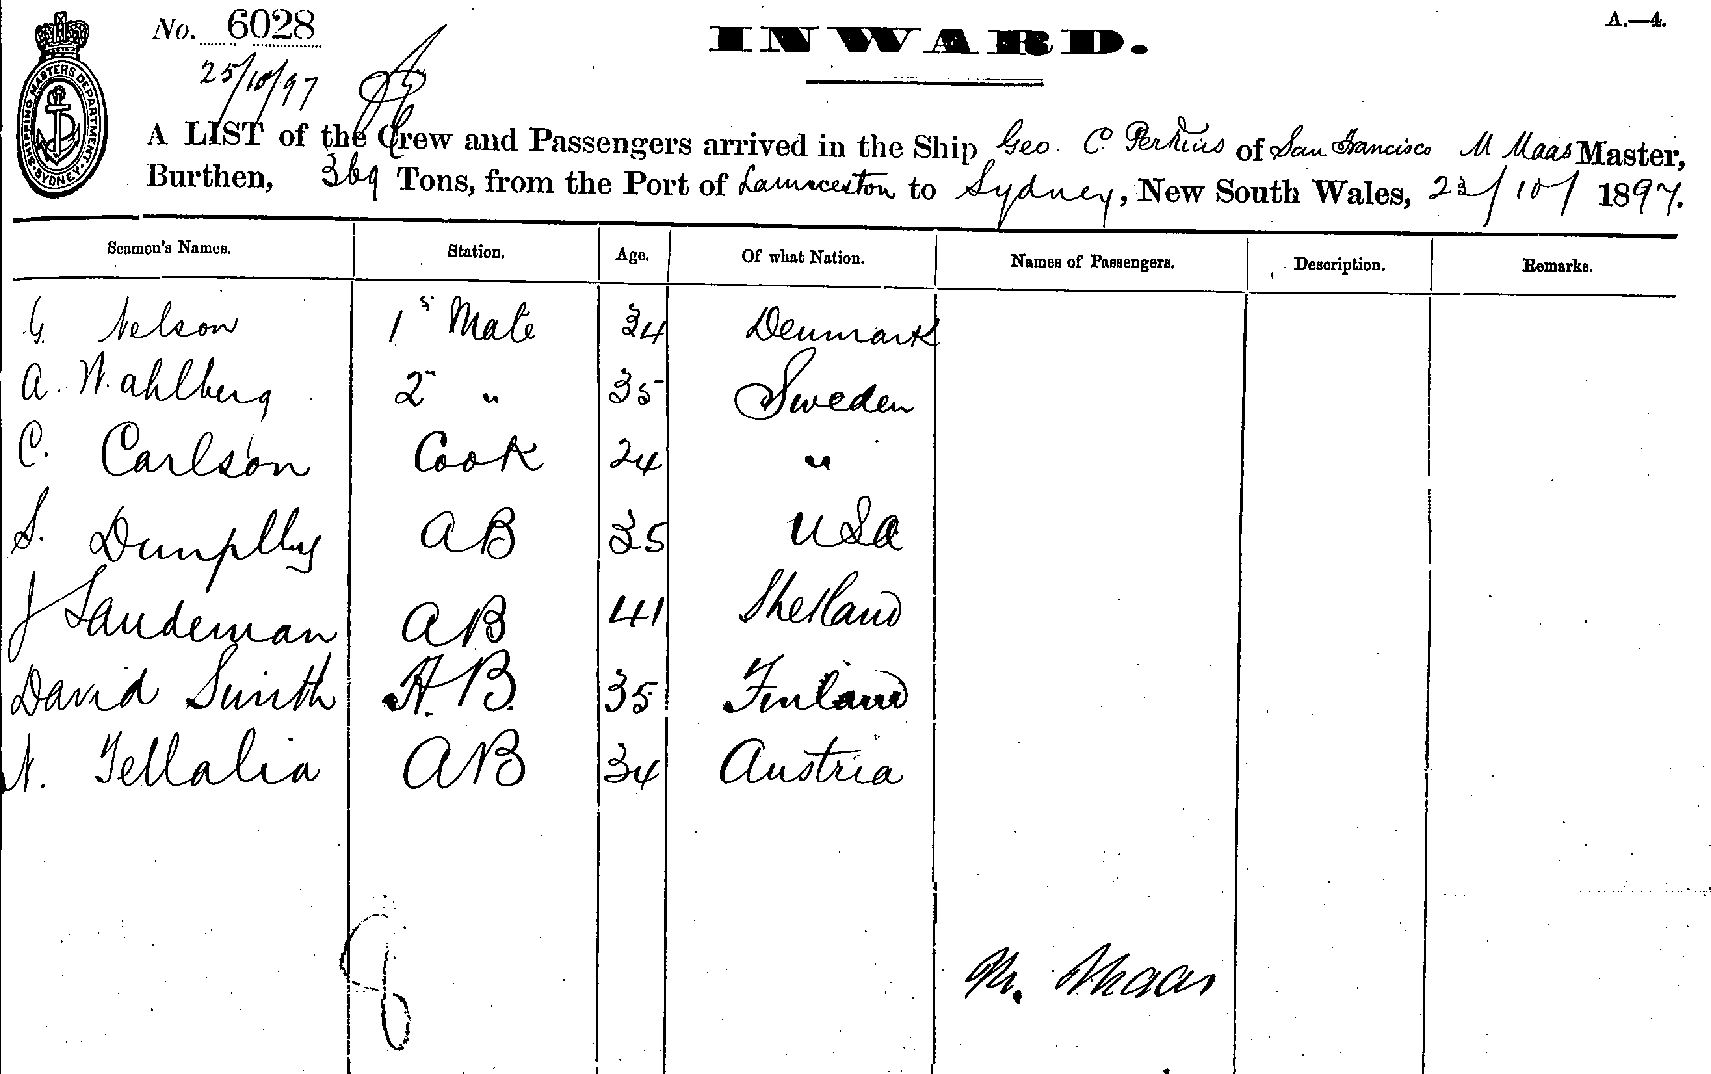 No. 6028
INWARD.
A.—4.
25/10/97
SHIPPING MASTERS DEPARTMENT SYDNEY
A LIST of the Crew and Passengers arrived in the Ship Geo. C Perkins of San Francisco M Maas Master,
Burthen, 369 Tons, from the Port of Launceston to Sydney, New South Wales, 23/10/1897.
Seamen's Names. Station. Age. Of what Nation. Names of Passengers. Description. Remarks.
G. Nelson 1s Mate 34 Denmark
A. Wahlberg 2 " 35 Sweden
C. Carlson Cook 24 "
S. AB 35 USA
J Sandeman AB 41 Shetland
David Smith A.B. 35 Finland
N. Tellalia AB 34 Austria
8
M. Maas